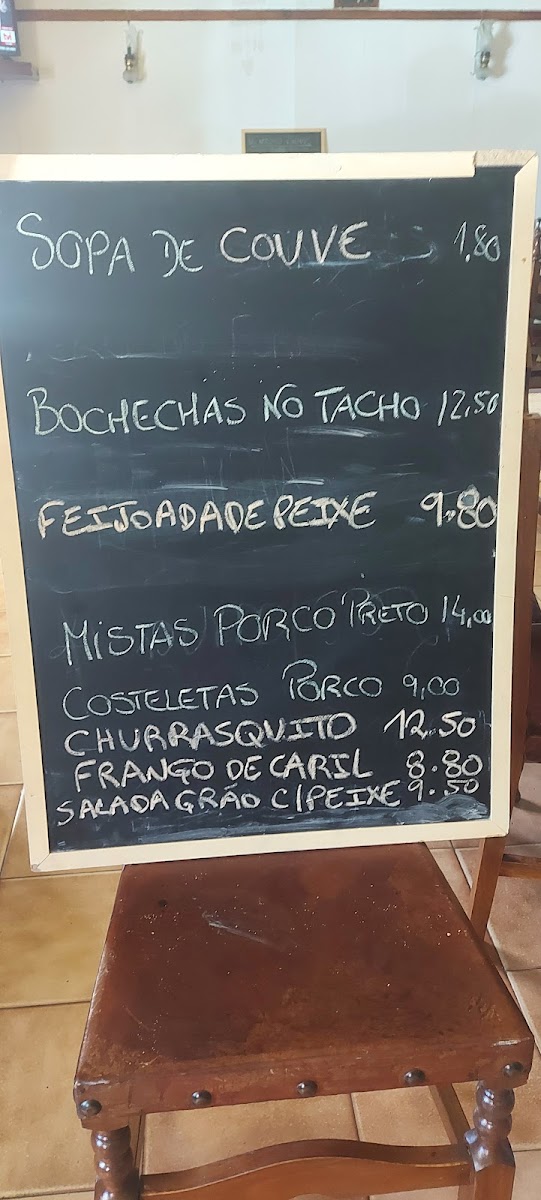 SOPA DE COUVE 1.80
BOCHECHAS NO TACHO 12,50
FEIJOADA DE PEIXE 9,80
MISTAS PORCO PRETO 14,00
COSTELETAS PORCO 9,00
CHURRASQUITO 12.50
FRANGO DE CARIL 8.80
SALADA GRÃO C/PEIXE 9.50